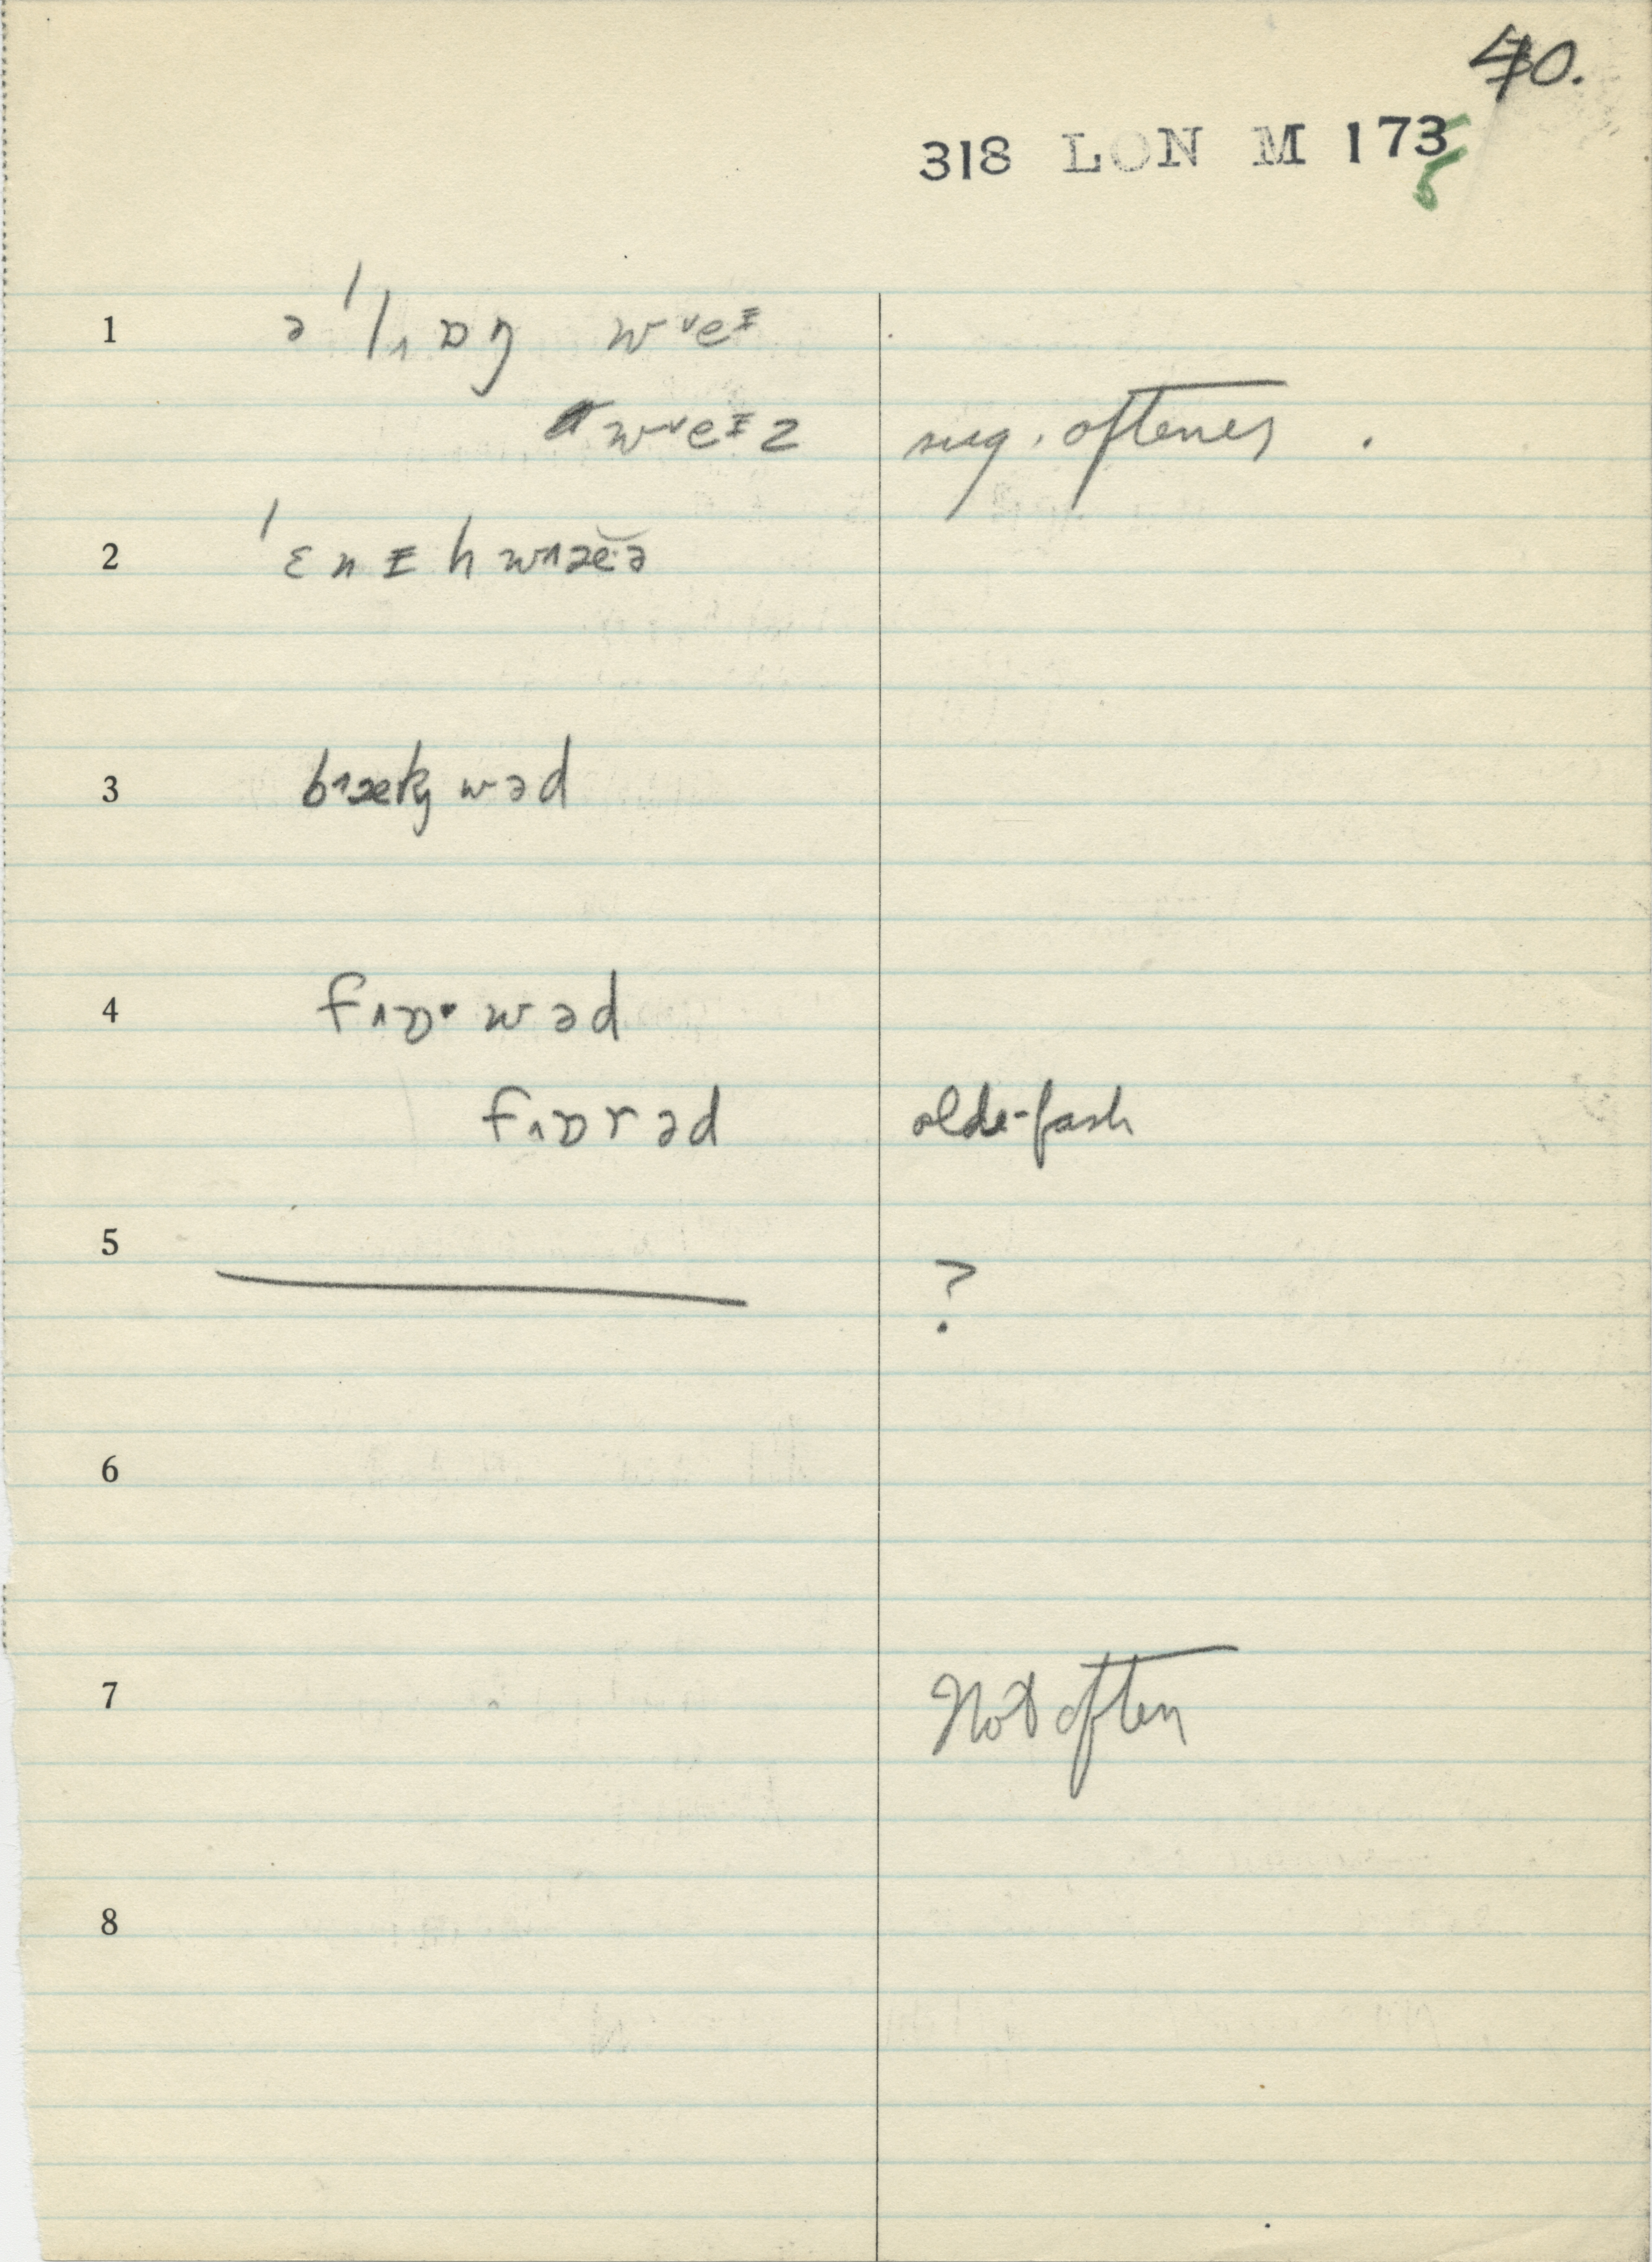 40.
318 LON M 173 5
1 ə ˈl˄ɒŋ wˇeᵻ
wˇeᵻz sug. oftenes .
2 ˈɛnᵻhw˄æĕ·ə
3 b˄ækwəd
4 f˄ɒ·wəd
f˄ɒrəd olde-fash
5 ?
6
7 Not often
8